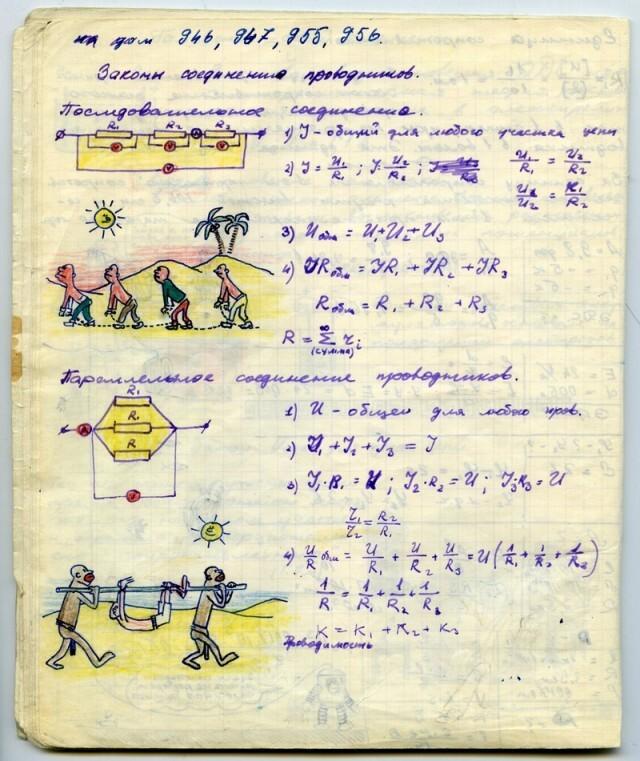 на дом 946, 947, 955, 956.
Законы соединения проводников.
Последовательное соединение.
R₁ R₂ A R₃
V V V
V
1) I - общий для любого участка цепи
2) I = U₁/R₁ ; I = U₂/R₂ ; U₁/R₁ = U₂/R₂
U₁/U₂ = R₁/R₂
3) U общ = U₁ + U₂ + U₃
4) IR общ = IR₁ + IR₂ + IR₃
R общ = R₁ + R₂ + R₃
R = ∞ Σ rᵢ
(сумма)
Параллельное соединение проводников.
R₁
A R₁
R
V
1) U - общей для любого пров.
2) I₁ + I₂ + I₃ = I
3) I₁·R₁ = U ; I₂·R₂ = U ; I₃·R₃ = U
I₁/I₂ = R₂/R₁
4) U/R общ = U/R₁ + U/R₂ + U/R₃ = U(1/R₁ + 1/R₂ + 1/R₃)
1/R = 1/R₁ + 1/R₂ + 1/R₃
K = K₁ + K₂ + K₃
Проводимость